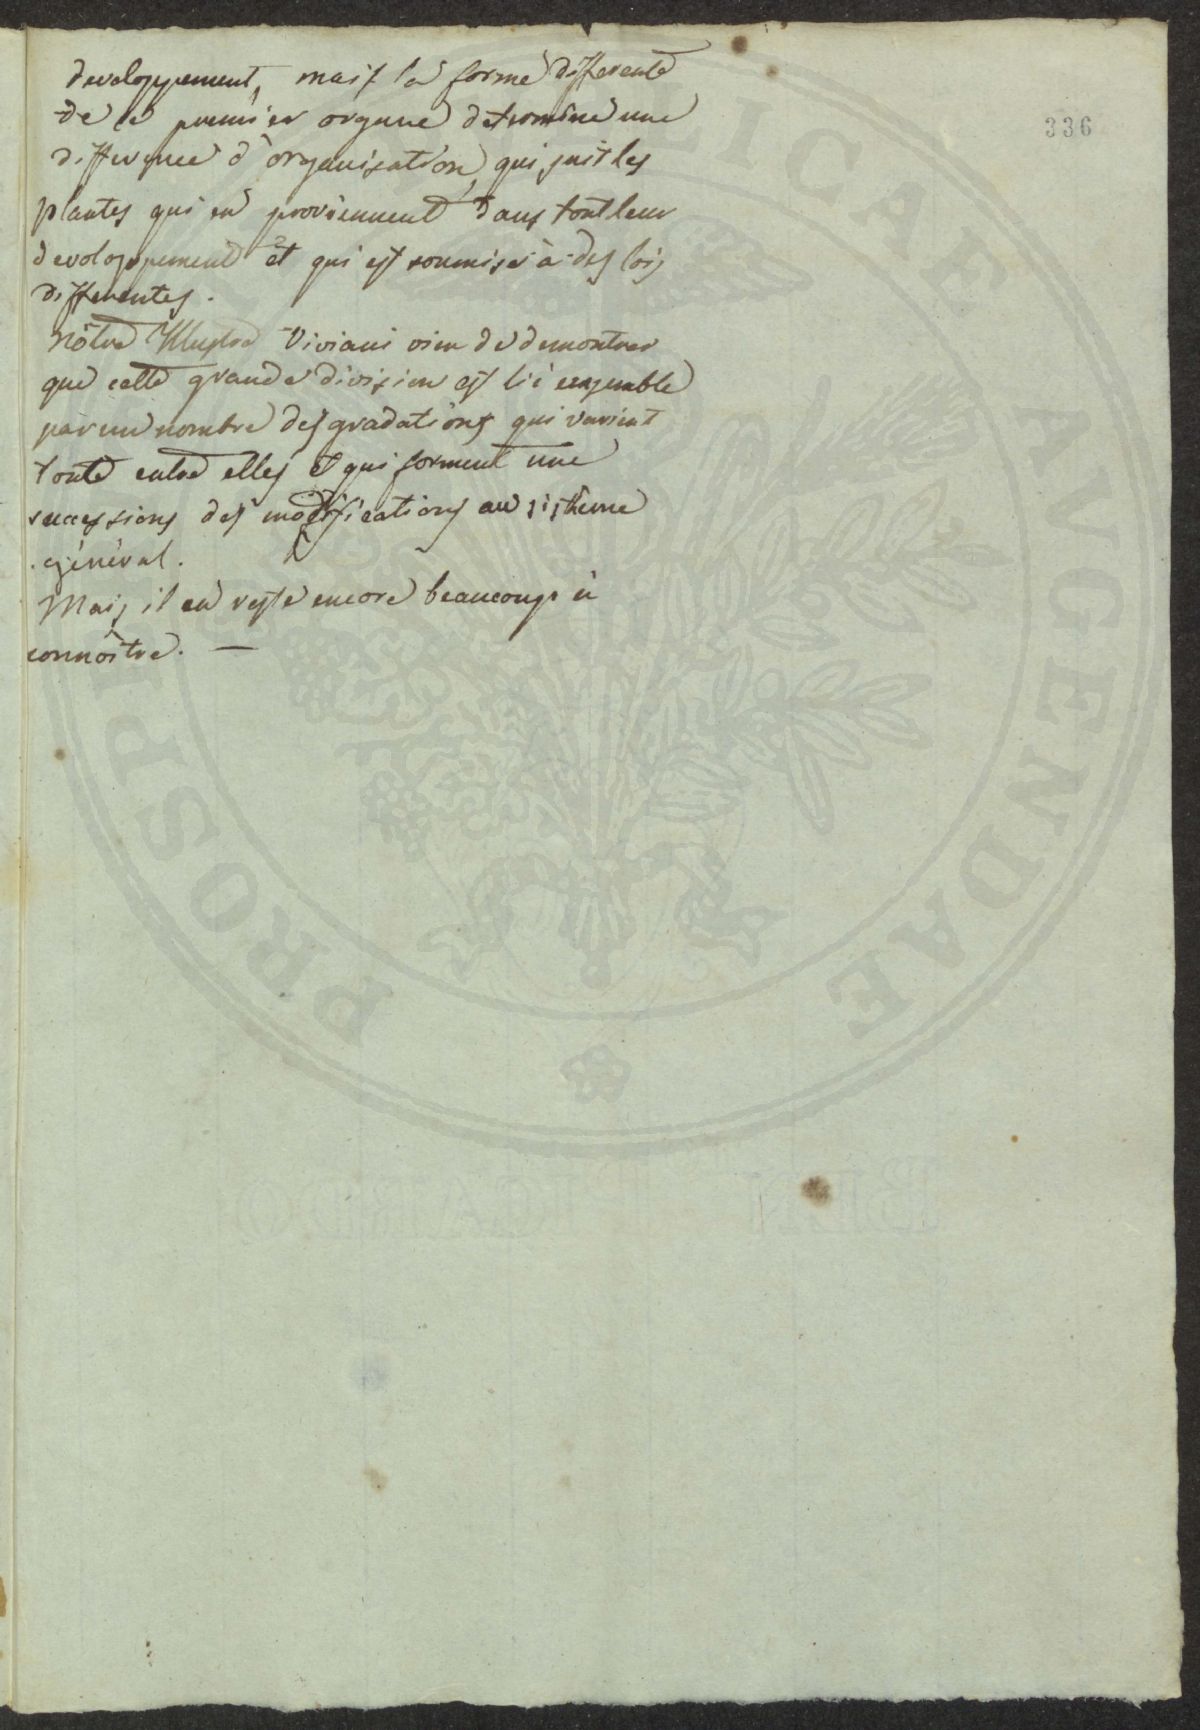 336
developpement, mais la forme differente
de ce premier organe determine une
difference d'organisation, qui suit les
plantes qui en proviennent dans tout leur
developpement et qui est soumise à des lois
differentes.
nôtre Illustre Viviani vien de demontrer
que cette grande division est lié ensemble
par un nombre des gradations qui varient
toute entre elles et qui forment une
successions des modifications au sisthême
général.
Mais il en reste encore beaucoup à
connoître. —
PROSPE
LICAE AVGENDAE